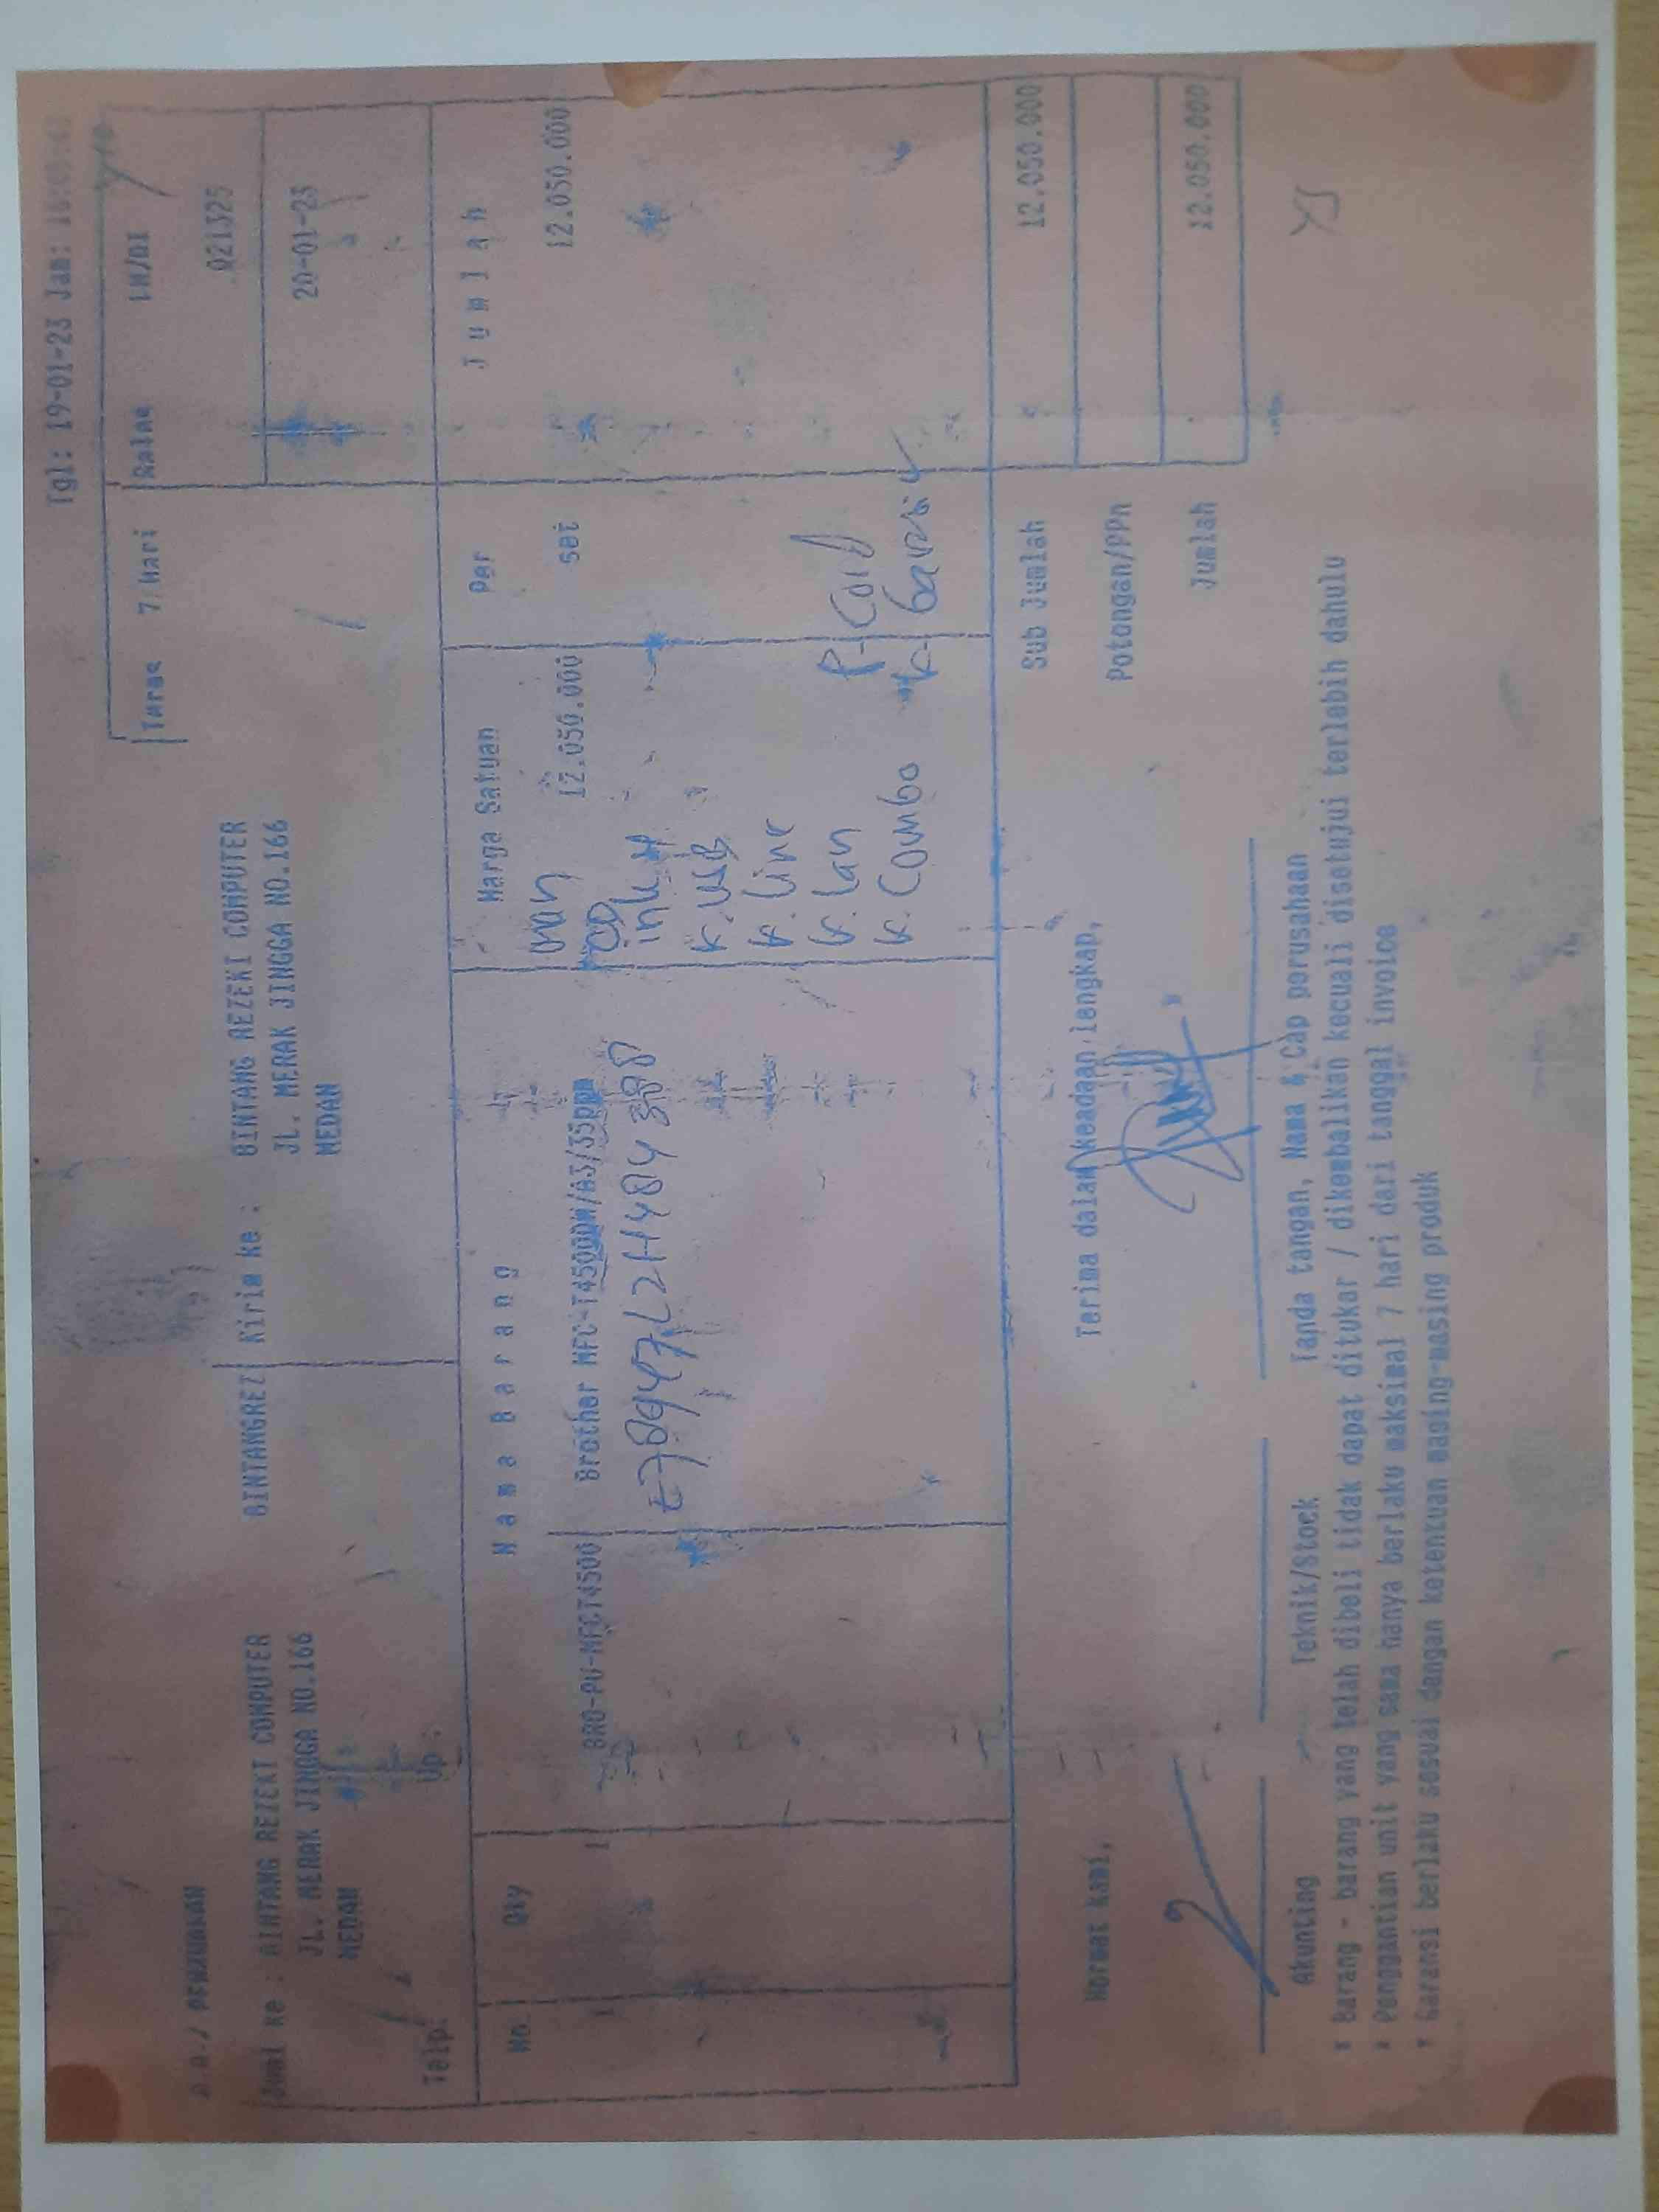 Tgl: 19-01-23 Jam:
Terms 7 Hari Sales LM/DI
021325
20-01-23
D.O./ PENJUALAN
Jual ke : BINTANG REZEKI COMPUTER BINTANGREZ Kirim ke : BINTANG REZEKI COMPUTER
JL. MERAK JINGGA NO.166 JL. MERAK JINGGA NO.166
MEDAN MEDAN
Telp: Up :
No. Qty Nama Barang Harga Satuan Per Jumlah
1 1 BRO-PU-MFCT4500 Brother MFC-T4500DW/A3/35ppm 12.050.000 set 12.050.000
man
CD
ink 4
K. USB
K. Line
K. Lan
K. Combo
P. Cord
K. Garansi
Sub Jumlah 12.050.000
Potongan/PPn
Jumlah 12.050.000
Hormat kami, Terima dalam keadaan lengkap,
Akunting Teknik/Stock Tanda tangan, Nama & Cap perusahaan
* Barang - barang yang telah dibeli tidak dapat ditukar / dikembalikan kecuali disetujui terlebih dahulu
* Penggantian unit yang sama hanya berlaku maksimal 7 hari dari tanggal invoice
* Garansi berlaku sesuai dengan ketentuan masing-masing produk